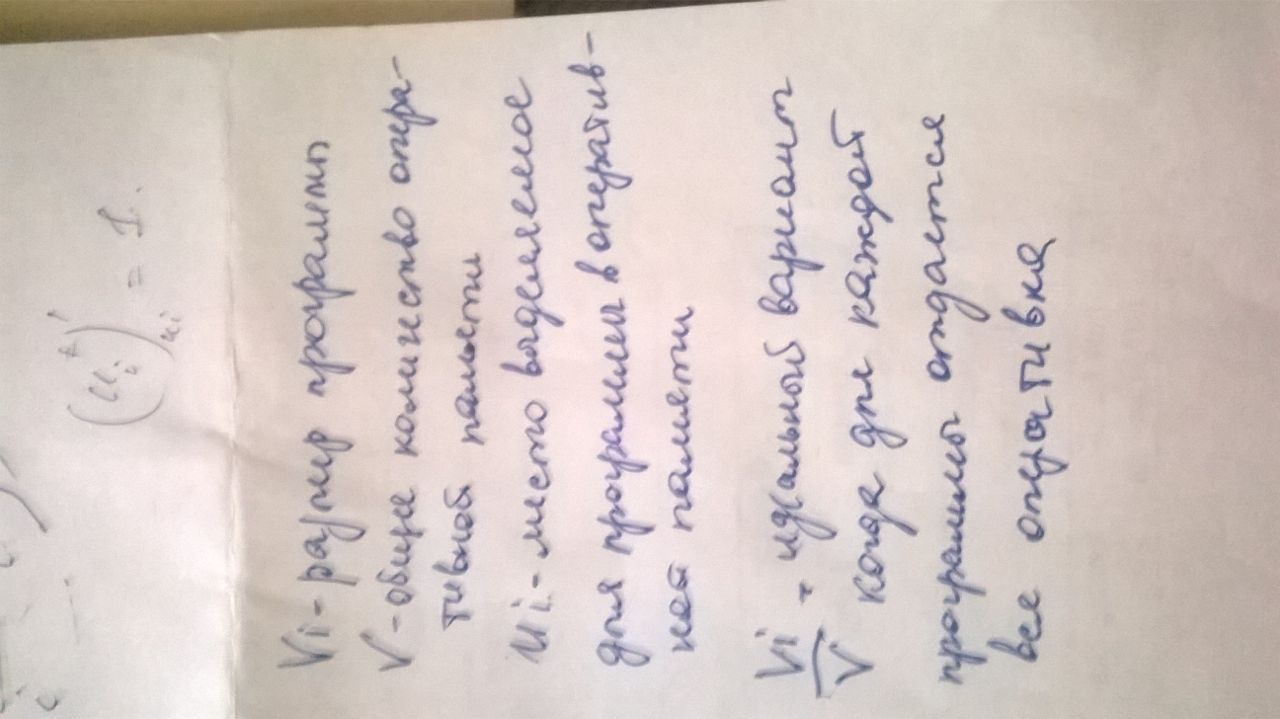 Vi - размер программы
V - общее количество опера-
тивной памяти
Ui - место выделяемое
для программы в оператив-
ной памяти
Vi/V - идеальный вариант
когда для каждой
программы отдается
вся оперативка